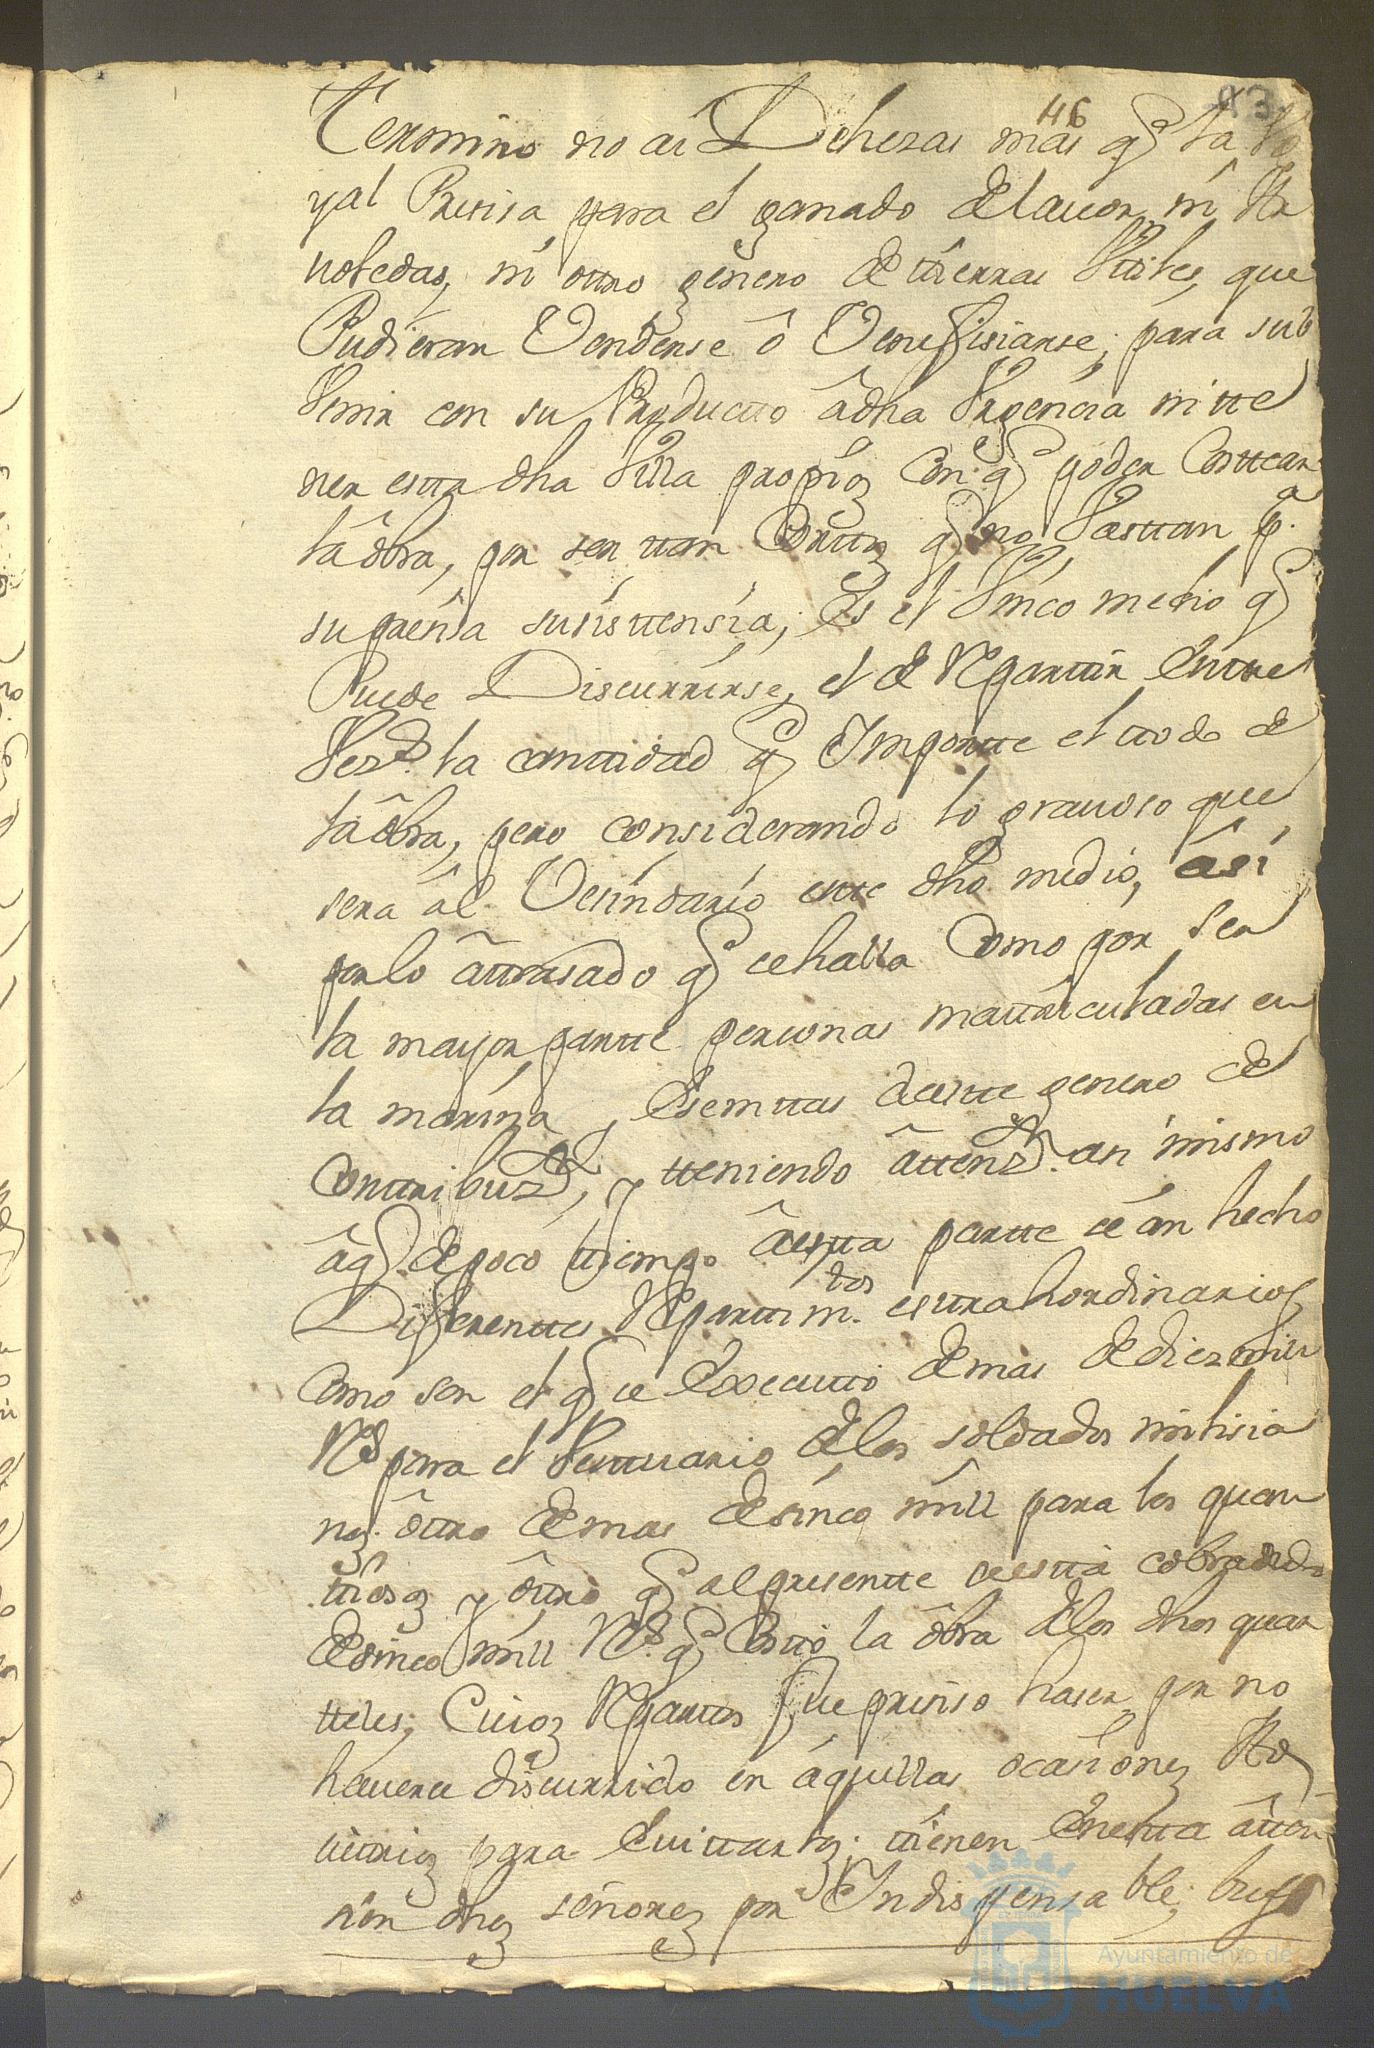 46
93
termino no ai Dehezas mas q̃ la Bo
yal Presisa para el ganado delavor, ni Ar
voledas, ni otro genero de tierras Vtiles, que
Pudieran Venderse ô Venefisiarse, para sub
Venir con su Producto âdha Vrgencia ni tte
ner estta dha Villa propios Con q̃ poder Costtear
la ôbra, por ser ttan Corttos q̃ no Vasttan p.ª
su presisa susisttensia; Es el Vnico medio q̃
Puede Discurrirse, el de Reparttir Enttre
Vez.ºs la canttidad q̃ Importte el ttodo de
la ôbra, pero considerando lo gravoso que
sera âl Vesindario estte dho medio, âsi
por lo âttrasado q̃ se halla Como por ser
la mayor partte personas mattriculadas en
la marina, Esemttas de estte genero de
Conttribuz.ⁿ, y tteniendo âttenz.ⁿ asi mismo
âq̃ de poco ttiempo âestta partte se án hecho
Diferenttes Reparttim.ttos exttrahordinarios
Como son el q̃ se Executtó demas de diez mill
Rs para el Vesttuario delos soldados milisia
nos. ôttro demas de sinco mill para los quan
ttiosos y ôttro q̃ al presentte se está cobrando
de sinco mill Rs. q̃ Costtó la ôbra delos dhos quar
tteles; Cuios Reparttos fue presiso haser por no
haverse discurrido en áquellas ocasiones Ar
vittrios para Evittarlos: ttienen Enestta âtten
sion dhos señores por Indispensable; bus
Ayuntamiento de
HUELVA